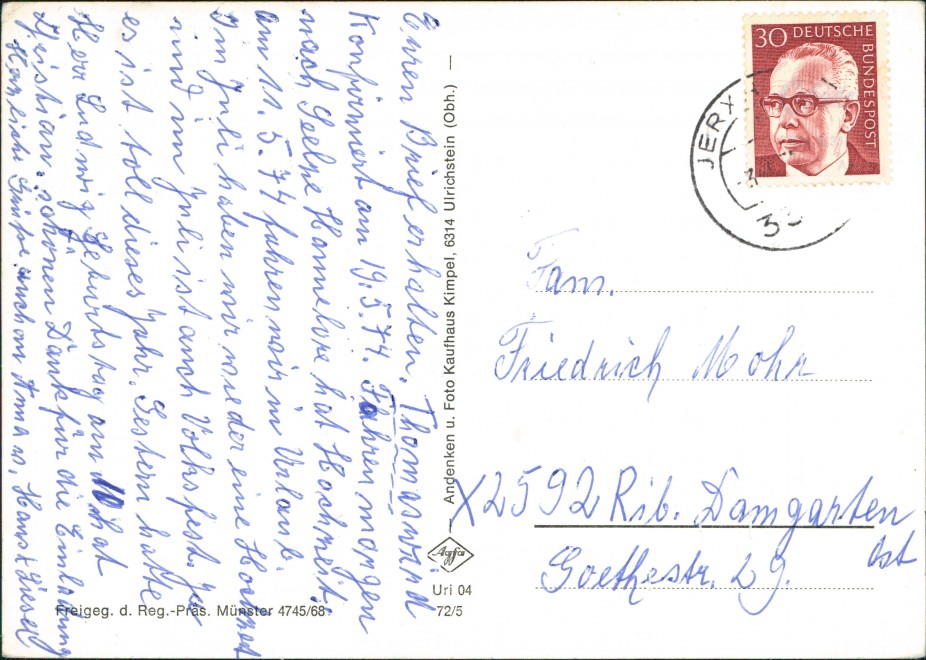 Euren Brief erhalten, Thomas wird
Konfirmiert am 19.5.74. Fahren morgen
nach Seelze Hannelore hat Hochzeit.
am 11.5.74 fahren wir in Urlaub.
Im Juli haben wir wieder eine Hochzeit
und im Juli ist auch Volksfest. Ja
es ist toll dieses Jahr. Gestern hatte
Herr Ludwig Geburtstag am 10 hat
schönen Dank für die Einladung
Herzliche Grüße auch an Oma u. Hans &
Andenken u. Foto Kaufhaus Kimpel, 6314 Ulrichstein (Obh.)
Agfa
Uri 04
72/5
Freigeg. d. Reg.-Präs. Münster 4745/68
30 DEUTSCHE
BUNDESPOST
JERX
Fam.
Friedrich Mohr
X2592 Rib. Damgarten
Ost
Goethestr. 29.